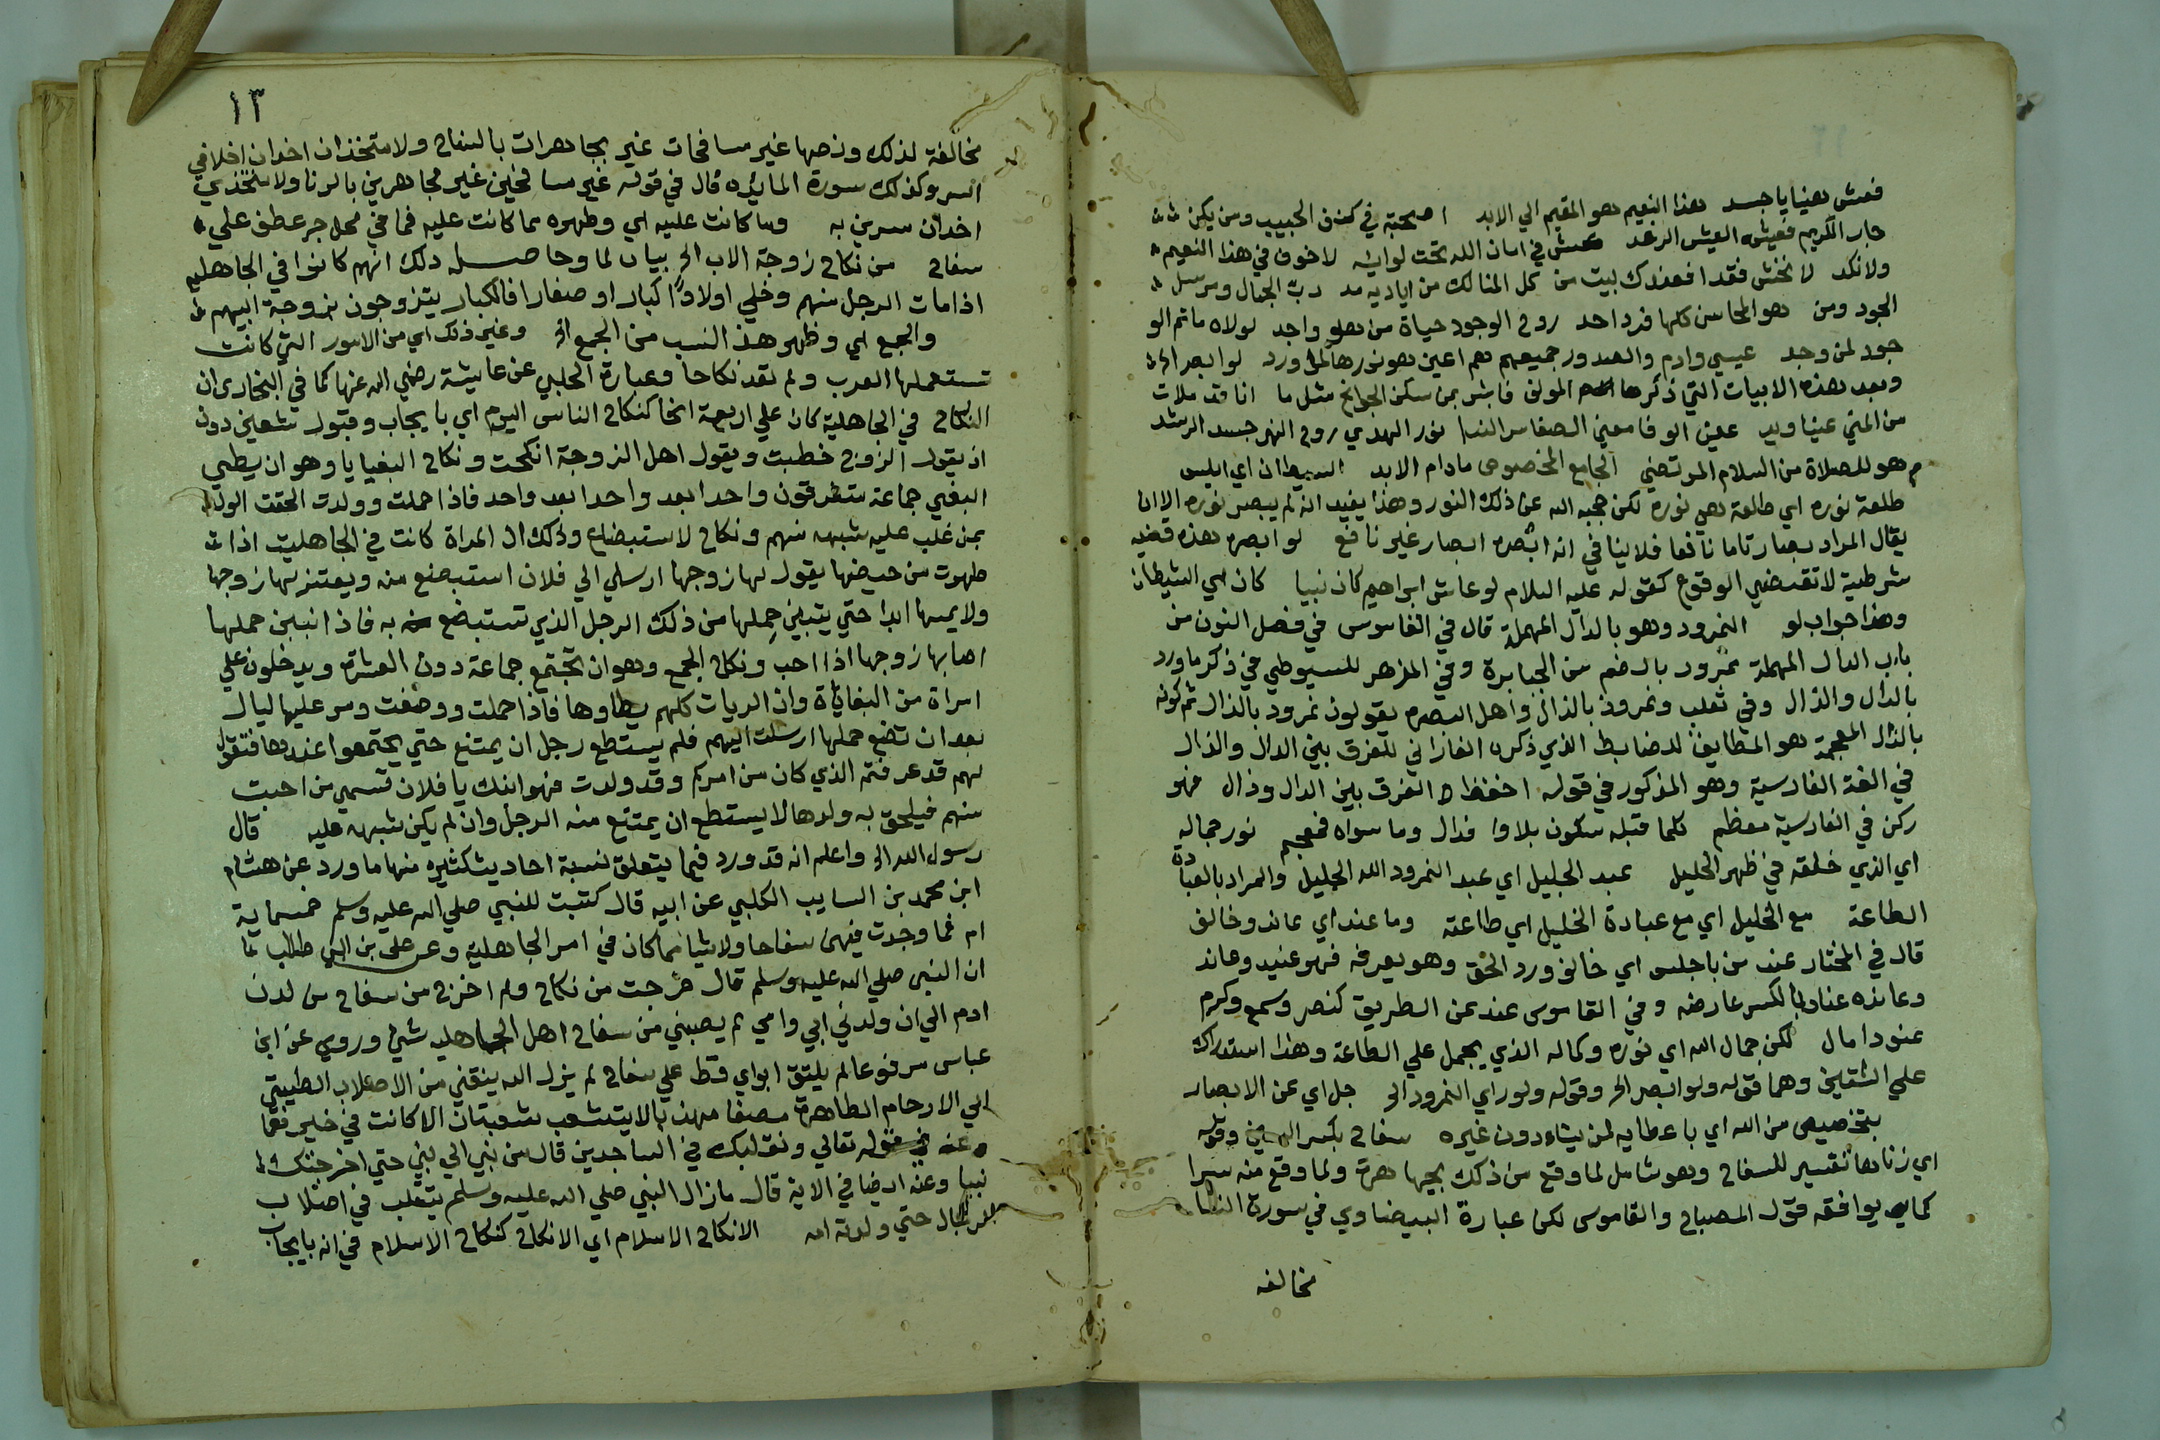 فعش هنيا يا جسد هذا النعيم هو المقيم الي الابد اصحبة في كنف الحبيب ومن يكن
جار الكريم فعيشه العيش الرغد عش في امان الله تحت لوايه لا خوف في هذا النعيم
ولا نكد لا تخش فقدا فعندك بيت من كل المنا لك من اياديه مد رب الجمال ومرسل
الجود ومن هو المحاسن كلها فرد احد روح الوجود حياة من هو واجد لولاه ما تم الو
جود لمن وجد عيسي وادم والصدور جميعهم هم اعين هو نورها لما ورد لو ابصر الخ
وبعد هذه الابيات التي ذكرها المولف فابشر بمن سكن الجوانح مثل ما انا قد ملات
من المني عينا ويد عين الوفا معني الصفا سر الندا نور الهدي روح النهي جسد الرشد
هو للصلاة من السلام المرتضي الجامع المخصوص مادام الابد الشيطان اي ابليس
طلعة نوره اي طالعة هي نوره لكن حجبه الله عن ذلك النور وهذا يفيد انه لم يبصر نوره الا ان
يقال المراد بصارتاما نافعا فلا ينافي انه ابصره ابصار غير نافع لو ابصره هذه قضيه
شرطية لا تقتضي الوقوع كقوله عليه السلام لو عاش ابراهيم كان نبيا كان اي الشيطان
وهذا جواب لو النمرود وهو بالدال المهملة قال في القاموس في فصل النون من
باب الدال المهملة نمرود بالضم من الجبابرة وفي المزهر للسيوطي في ذكر ما ورد
بالدال والذال وفي ثعلب ونمروذ بالذال واهل البصره يقولون نمرود بالدال ثم كونه
بالذال المعجمة هو المطابق للضابط الذي ذكره الفارابي للفرق بين الدال والذال
في اللغة الفارسية وهو المذكور في قوله احفظ الفرق بين الدال وذال فهو
ركن في الفارسية معظم كلما قبله سكون بلا وا فدال وما سواه فمعجم نور جماله
اي الذي خلقه في ظهر الخليل عبد الجليل اي عبد النمرود الله الجليل والمراد بالعبادة
الطاعة مع الخليل اي مع عبادة الخليل اي طاعته وما عند اي عاند وخالف
قال في المختار عند من باب جلس اي خالف ورد الحق وهو يعرفه فهو عنيد وعاند
وعانده عنادا بالكسر عارضه وفي القاموس عند عن الطريق كنصر وسمع وكرم
عنودا مال لكن جمال الله اي نوره وكماله الذي يحمل علي الطاعة وهذا استدراك
علي الشقين وهما قوله ولو ابصر الخ وقوله ولو راي النمرود الخ جل اي عن الابصار
بتخصيص من الله اي باعطايه لمن يشاء دون غيره سفاح بكسر السين وقوله
اي زنا هذا تفسير للسفاح وهو شامل لما وقع من ذلك بجهاهرة ولما وقع منه سرا
كما يوافقه قول المصباح والقاموس لكن عبارة البيضاوي في سورة النسا
مخالفه
١٣
مخالفة لذلك ونصها غير مسافحات غير مجاهرات بالسفاح ولا متخذات اخدان اخلا في
السر وكذلك سورة المائده قال في قوله غير مسافحين غير مجاهرين بالزنا ولا متخذي
اخدان سرين به وما كانت عليه اي وطهره مما كانت عليه فما في محل جر عطف علي
سفاح من نكاح زوجة الاب الخ بيان لما وحاصله ذلك انهم كانوا في الجاهليه
اذا مات الرجل منهم وخلي اولادا كبار او صغارا فالكبار يتزوجون زوجة ابيهم
والجمع اي وظهر هذا النسب من الجمع الخ وغير ذلك اي من الامور التي كانت
تستعملها العرب ولم تعد نكاحا وعبارة الحلبي عن عايشة رضي الله عنها كما في البخاري ان
النكاح في الجاهلية كان علي اربعة انحا كنكاح الناس اليوم اي بايجاب وقبول شعين دون
ان يقول الزوج خطبت ويقول اهل الزوجة انكحت ونكاح البغايا وهو ان يطي
البغي جماعة متفرقون واحدا بعد واحدا بعد واحد فاذا حملت وولدت الحقت الولد
بمن غلب عليه شبهه منهم ونكاح لاستبضاع وذلك ان المراة كانت في الجاهلية اذا
طهرت من حيضها يقول لها زوجها ارسلي الي فلان استبضعي منه ويعتزلها زوجها
ولا يمسها ابدا حتي يتبين حملها من ذلك الرجل الذي تستبضع به فاذا تبين حملها
اصابها زوجها اذا احب ونكاح الجمع وهو ان تجتمع جماعة دون العشرة ويدخلون علي
امراة من البغايا ذات الريات كلهم يطاوها فاذا حملت ووضعت ومر عليها ليال
بعد ان تضع حملها ارسلت اليهم فلم يستطع رجل ان يمتنع حتي يجتمعوا عندها فتقول
لهم قد عرفتم الذي كان من امركم وقد ولدت فهو ابنك يا فلان تسمي من احبت
منهم فيلحق به ولدها لا يستطع ان يمتنع منه الرجل وان لم يكن شبهه عليه قال
رسول الله الخ واعلم انه قد ورد فيما يتعلق نسبة احاديث كثيره منها ما ورد عن هشام
ابن محمد بن السايب الكلبي عن ابيه قال كتبت للنبي صلي الله عليه وسلم خمسماية
ام فما وجدت فيهن سفاحا ولا شيا مما كان في امر الجاهلية وعن علي بن ابي طالب
ان النبي صلي الله عليه وسلم قال خرجت من نكاح ولم اخرج من سفاح من لدن
ادم الي ان ولدني ابي وامي لم يصبني من سفاح اهل الجاهليه شي وروي عن ابن
عباس مرفوعا لم يلتق ابواي قط علي سفاح لم يزل الله ينقلني من الاصلاب الطيبة
الي الارحام الطاهرة مصفا مهذبا لا يتشعب شعبتان الا كانت في خيرهما
وعنه في قوله تعالي وتقلبك في الساجدين قال من نبي الي نبي حتي اخرجتك
نبيا وعنه ايضا في الاية قال مازال النبي صلي الله عليه وسلم يتقلب في اصلاب
الرجال حتي ولدته امه الا نكاح الاسلام اي الا نكاح كنكاح الاسلام في انه بايجاب